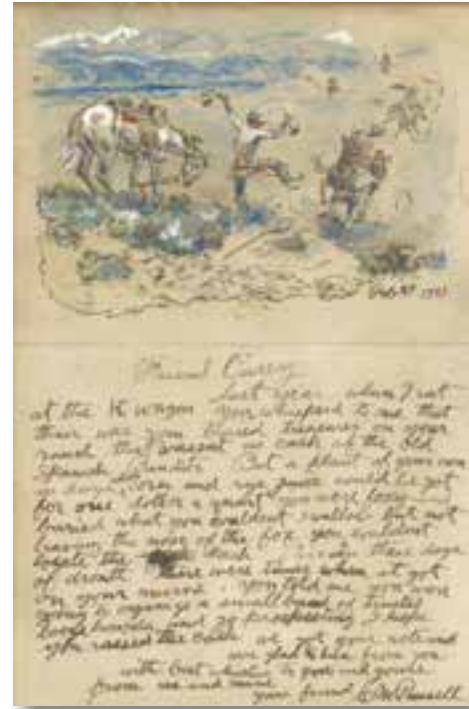 Friend Currey
Last year when I eat
at the K wagon you whispered to me that
there was buried treasure on your
ranch that wasent no cash of the old
Spanish Bandits But a plant of your own
in days and rye juice could be got
for one doller a quart you were foxy
buried what you couldent swallow But not
having the nose of the fox you couldent
locate the in these days
of drouth there were times when it got
on your nerves You told me you were
going to orginize a small band of trusted
and go prospecting I hope
you rassed the cash we got your note and
we glad to hear from you
with best whishes to you and yours
from me and mine
your friend C M Russell